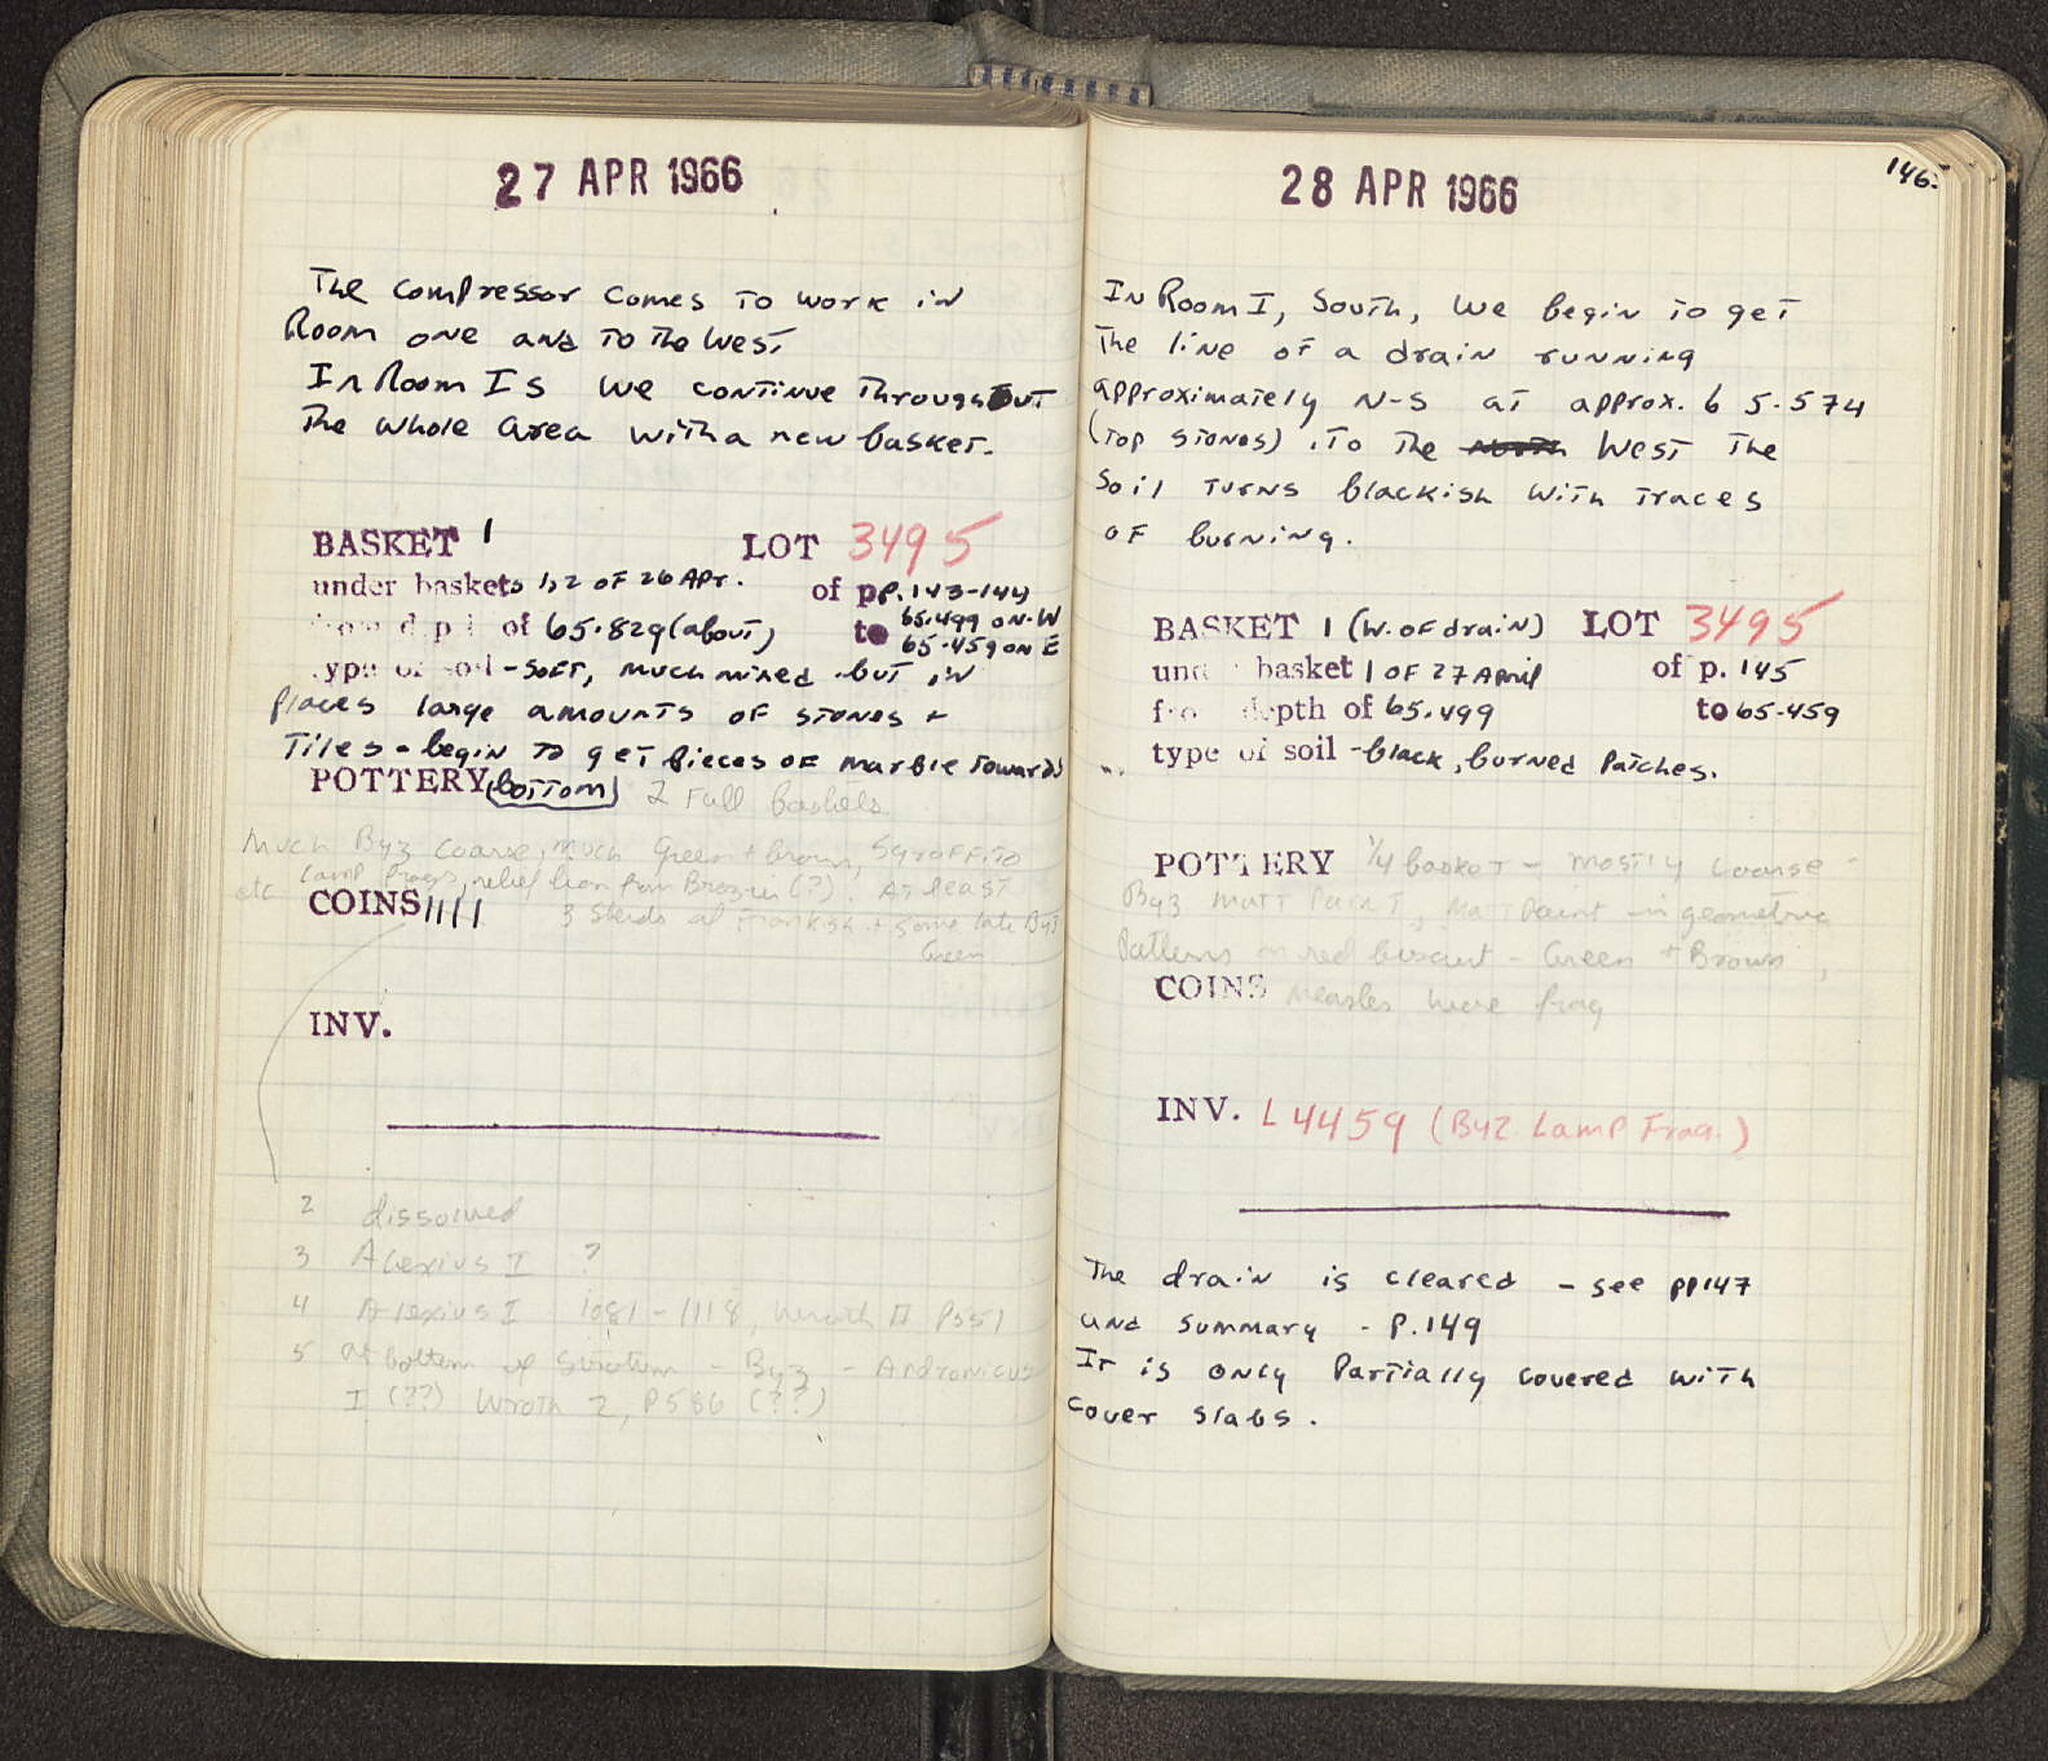 27 APR 1966
The compressor comes to work in
Room one and to the West.
In Room I S we continue throughout
the whole area with a new basket.
BASKET 1 LOT 3495
under baskets 1,2 of 26 Apr. of pp. 143-144
from depth of 65.829 (about) to 65.499 on W
65.459 on E
type of soil - soft, much mixed but in
places large amounts of stones +
tiles - begin to get pieces of marble towards
POTTERY (bottom) 2 full baskets
Much Byz coarse, much Green + brown, Sgraffito
etc lamp frags, relief from (?). At least
COINS 1111 3 sherds of Frankish + some late Byz
Green
INV.
2 dissolved
3 Alexius I ?
4 Alexius I 1081-1118, Wroth II P551
5 at bottom of stratum - Byz - Andronicus
I (??) Wroth 2, P586 (??)
146.
28 APR 1966
In Room I, South, we begin to get
the line of a drain running
approximately N-S at approx. 65.574
(top stones). To the West the
soil turns blackish with traces
of burning.
BASKET 1 (W. of drain) LOT 3495
under basket 1 of 27 April of p. 145
from depth of 65.499 to 65.459
type of soil - black, burned patches.
POTTERY 1/4 basket - mostly coarse -
Byz matt paint, Matt Paint in geometric
patterns on red biscuit - Green + Brown,
COINS measles ware frag
INV. L4459 (Byz. Lamp Frag.)
The drain is cleared - see pp147
and summary - p.149
It is only partially covered with
cover slabs.